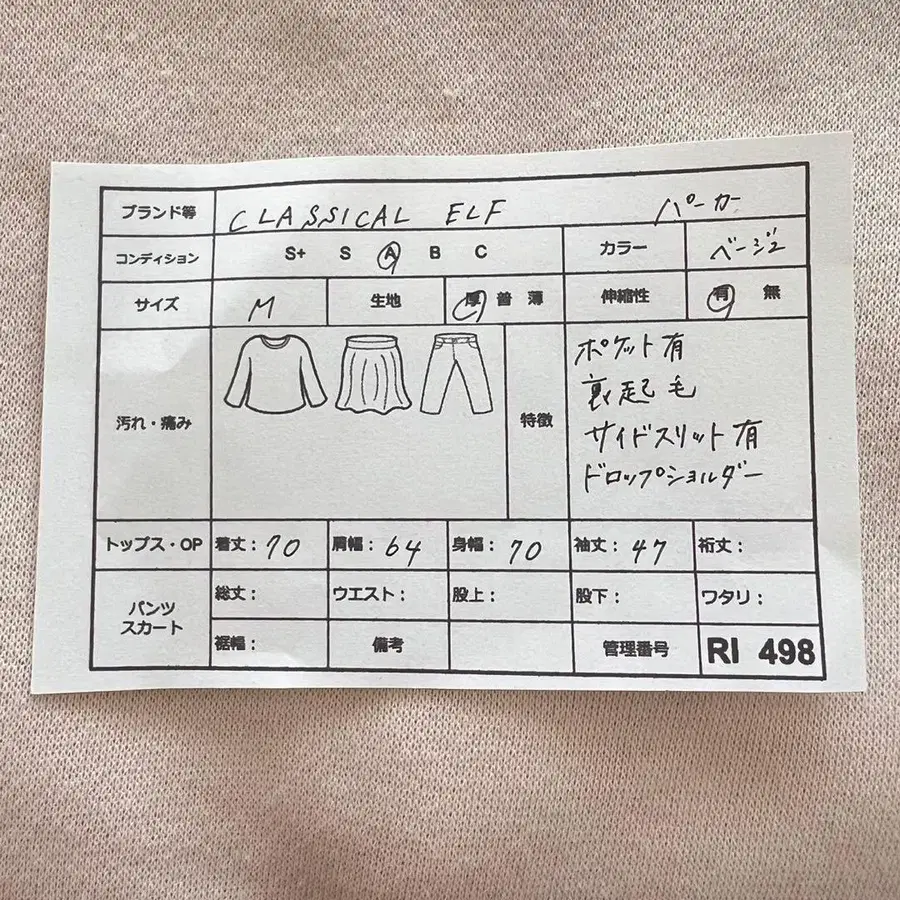 ブランド等 CLASSICAL ELF パーカー
コンディション S+ S A B C カラー ベージュ
サイズ M 生地 厚 普 薄 伸縮性 有 無
汚れ・痛み 特徴
ポケット有
裏起毛
サイドスリット有
ドロップショルダー
トップス・OP 着丈：70 肩幅：64 身幅：70 袖丈：47 裄丈：
パンツ
スカート
総丈： ウエスト： 股上： 股下： ワタリ：
裾幅： 備考 管理番号 RI 498